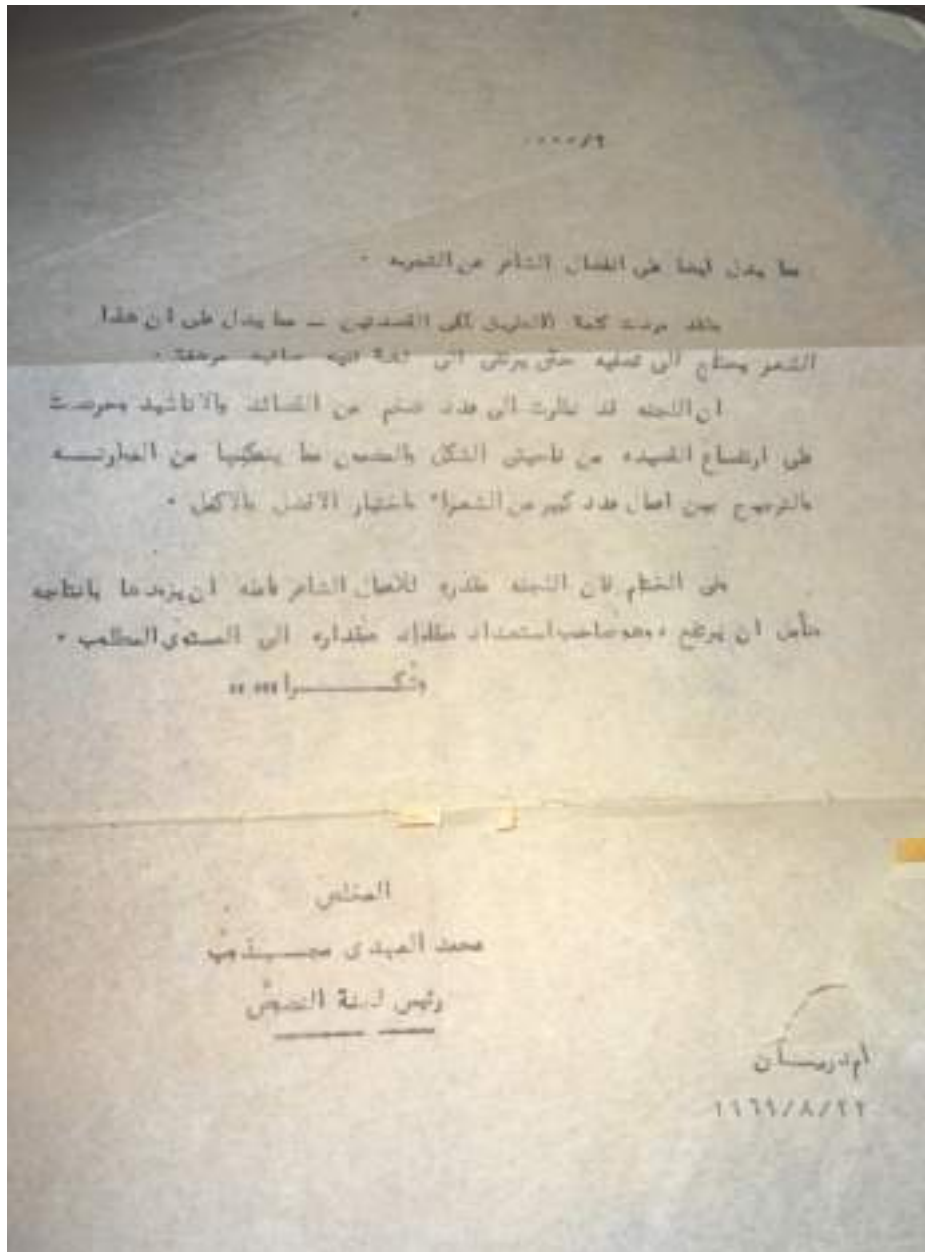 ٢/٠٠٠٠
مما يدل ايضا على انفصال الشاعر عن التجربه ٠
ولقد وردت كلمة الطريق القصيدتين ــ مما يدل على ان هذا
الشعر يحتاج الى تصفيه حتى يرتقى الى لغة فنيه صافيه مرهفة ٠
ان اللجنه قد نظرت الى عدد ضخم من القصائد والاناشيد وحرصت
على ارتفاع القصيده من ناحيتى الشكل والمضمون مما يمكنها من الموازنــــه
والترجيح بين اعمال عدد كبير من الشعراء باختيار الافضل والاكمل ٠
وفى الختام فان اللجنه مقدره للأعمال الشاعر ان يزودها بانتاجه
وتأمل ان يرتفع ، وهو صاحب استعداد الى المستوى المطلوب ٠
وشكـــــــــرا ،،، ،،
المخلص
محمد المهدى مجـــــذوب
رئيس لجنة النصوص
أم درمـــان
١٩٦٩/٨/٢٢